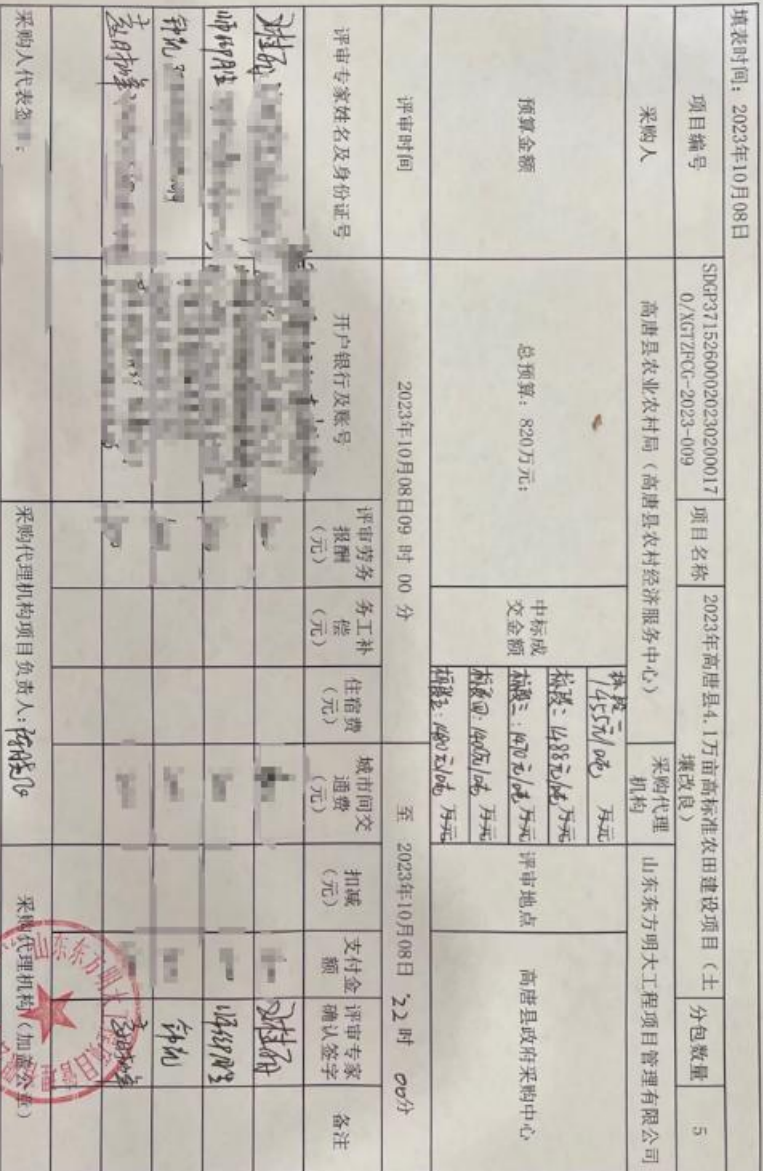 填表时间：2023年10月08日
项目编号
SDGP371526000202302000170/XGTZFCG-2023-009
项目名称
2023年高唐县4.1万亩高标准农田建设项目（土壤改良）
分包数量
5
采购人
高唐县农业农村局（高唐县农村经济服务中心）
采购代理机构
山东东方明大工程项目管理有限公司
预算金额
总预算：820万元；
中标成交金额
标段一 1455元/吨 万元
标段二：1488元/吨 万元
标段三：1470元/吨 万元
标段四：1400元/吨 万元
标段五：1480元/吨 万元
评审地点
高唐县政府采购中心
评审时间
2023年10月08日09 时 00 分
至 2023年10月08日 22 时 00分
评审专家姓名及身份证号
开户银行及账号
评审劳务报酬（元）
务工补偿（元）
住宿费（元）
城市间交通费（元）
扣减（元）
支付金额
评审专家确认签字
备注
采购人代表签
采购代理机构项目负责人：
采购代理机构（加盖公章）
山东东方明大工程项目管理